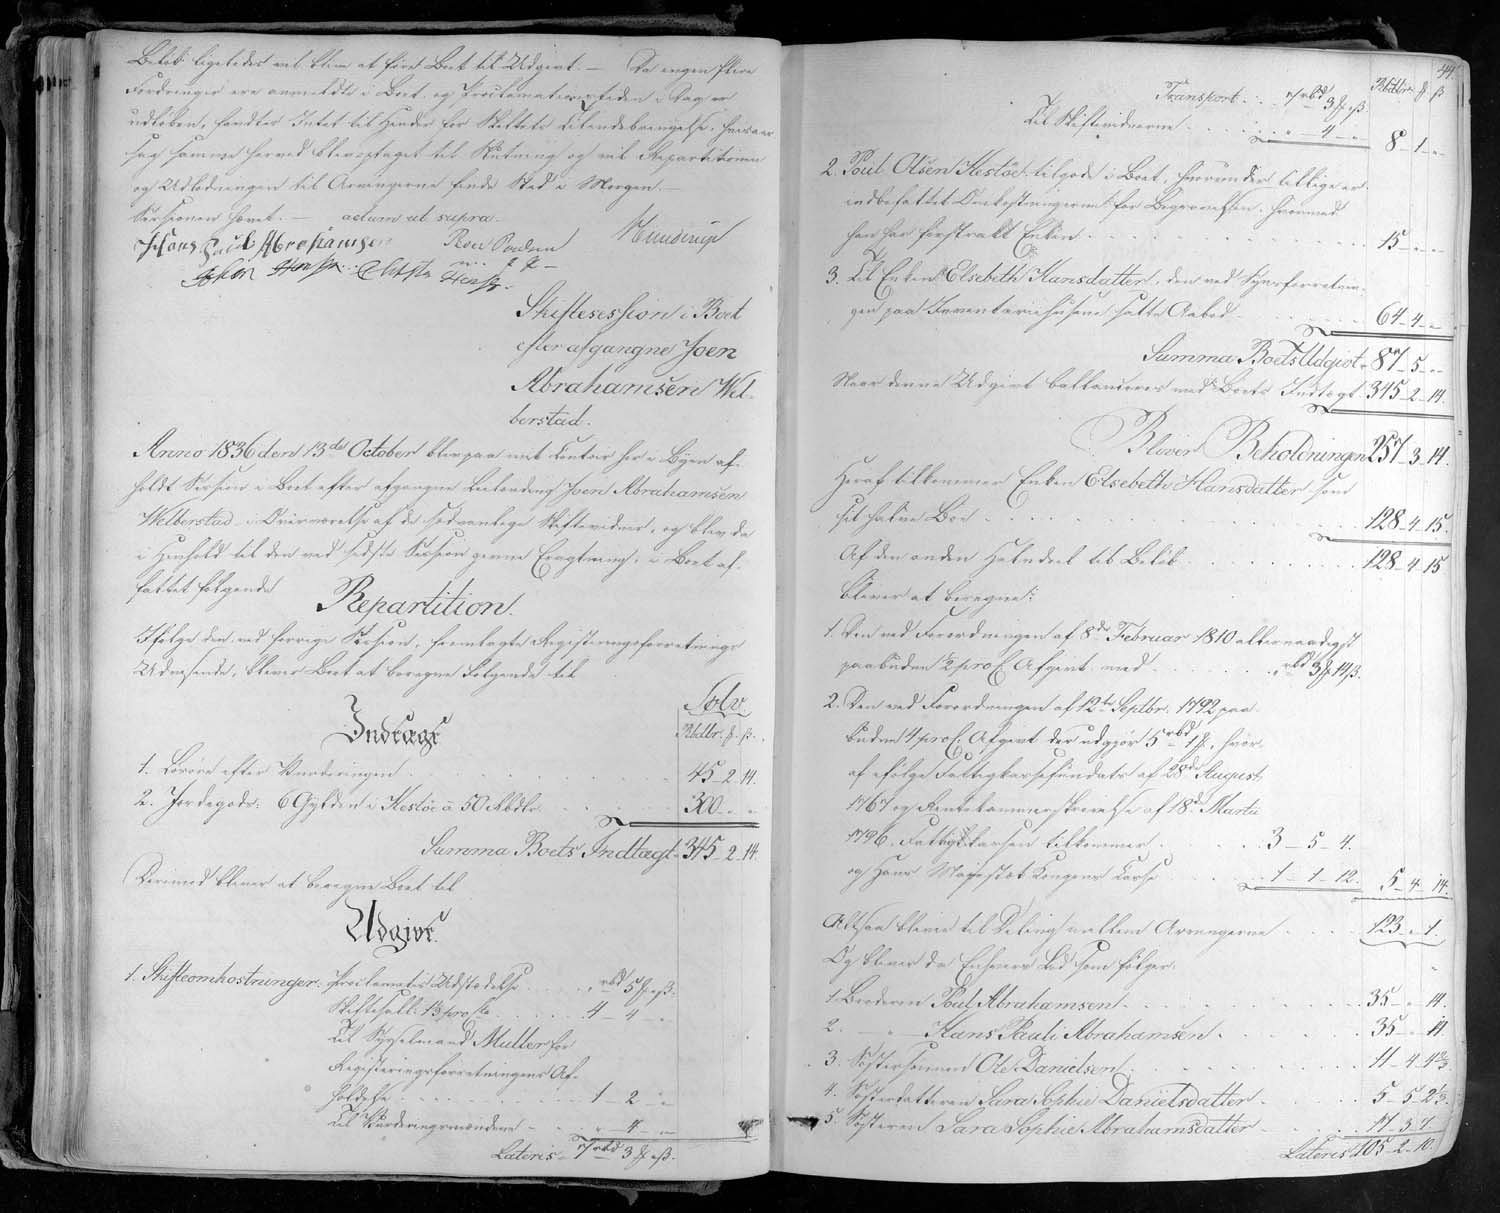 Beløb ligeledes vil blive at føre Boet til Udgivt. — Da ingen flere
Fordringer ere anmeldte i Boet, og Proclamationstiden i Dag er
udløben, fandtes Intet til Hinder for Skiftets tilendebringelse, hvis aar
sag samme herved blev optaget til Slutning og vil Repartitionen
og Udlodningen til Arvingerne finde Sted i Morgen. —
Sessionen hævet. — actum ut supra.
Hans Paul Abrahamsen Poul Poulsen Mundrup
Johan Hansen
Skiftesession i Boet
efter afgangne Joen
Abrahamsen Wel-
berstad.
Anno 1836 den 13de October blev paa mit Contoir her i Byen af-
holdt Session i Boet efter afgangne Joen Abrahamsen
Welberstad i Overværelse af de sædvanlige Skiftevidner, og blev da
i Henhold til den ved sidste Session givne Eragtning, i Boet af-
fattet følgende
Repartition.
Ifølge den ved forrige Session, fremlagte Registreringsforretnings
Udvisende, bliver Boet at beregne Følgende til
Sølv.
Indtægt
Rbdlr. ₰ ß.
1. Løsøre efter Vurderingen . . . 45 - 2. 14.
2. Jordegods: 6 Gylden i Kestøe à 50 Rbdlr. . . . 300 - " - "
Summa Boets Indtægt 345 - 2 - 14.
Derimod bliver at beregne Boet til
Udgivt.
1. Skifteomkostninger. Proclamatis Udstedelse . . . " rbd 5 ₰ " ß.
Skiftesall: 1⅓ pro Cto . . . 4 - 4 - "
Til Sysselmand Muller for
Registreringsforretningens Af-
holdelse . . . 1 - 2 - "
Til Vurderingsmændene - . . " - 4 - "
Lateris. 7 rbd 3 ₰ " ß.
44.
Rbdlr. ₰ ß
Transport . . 7 rbd 3 ₰ " ß.
Til Skiftevidnerne . . . " - 4 - " 8 - 1 - "
2. Poul Olsen Kestøe tilgode i Boet, herunder tillige er
indbefattet Omkostningerne for Begravelsen, hvormed
han har forstrakt Enken . . . 15 - " - "
3. Til Enken Elsebeth Hansdatter, den ved Synsforretnin-
gen paa Inventariihusene satte Aabod . . . 64 - 4 - "
Summa Boets Udgivt 87 - 5 - "
Naar denne Udgivt ballanceres med Boets Indtægt 345 - 2 - 14.
Bliver Beholdningen 257 - 3 - 14.
Heraf tilkommer Enken Elsebeth Hansdatter som
sit halve Boe . . . 128 - 4 - 15.
Af den anden Halvdeel til Beløb . . . 128 - 4 - 15
bliver at beregne:
1. Den ved Forordningen af 8de Februar 1810 allernaadigst
paabuden ½ pro C. Afgivt med . . . " rbd 3 ₰ 14 ß.
2. Den ved Forordningen af 12te Septbr. 1792 paa-
buden 4 pro C. Afgivt der udgjør 5 rbd 1 ₰, hvor-
af ifølge Fattigkassefundats af 28de August
1767 og Rentekammerskrivelse af 18de Martii
1796. Fattigkassen tilkommer . . . 3 - 5 - 4.
og Hans Majestæt Kongens Casse . . . 1 - 1 - 12. 5 - 4 - 14.
Altsaa blive til Deling mellem Arvingerne . . . 123 - " 1.
Og bliver da Enhvers Lod som følger:
1. Broderen Poul Abrahamsen . . . 35 - " 14.
2. — " — Hans Pauli Abrahamsen . . . 35 - " 14
3. Søstersønnen Ole Danielsen . . . 11 - 4. 4⅔
4. Søsterdatteren Sara Sophie Danielsdatter . . . 5 - 5 2⅓.
5. Søsteren Sara Sophie Abrahamsdatter . . . 17 - 3. 7
Lateris 105 - 2 - 10.